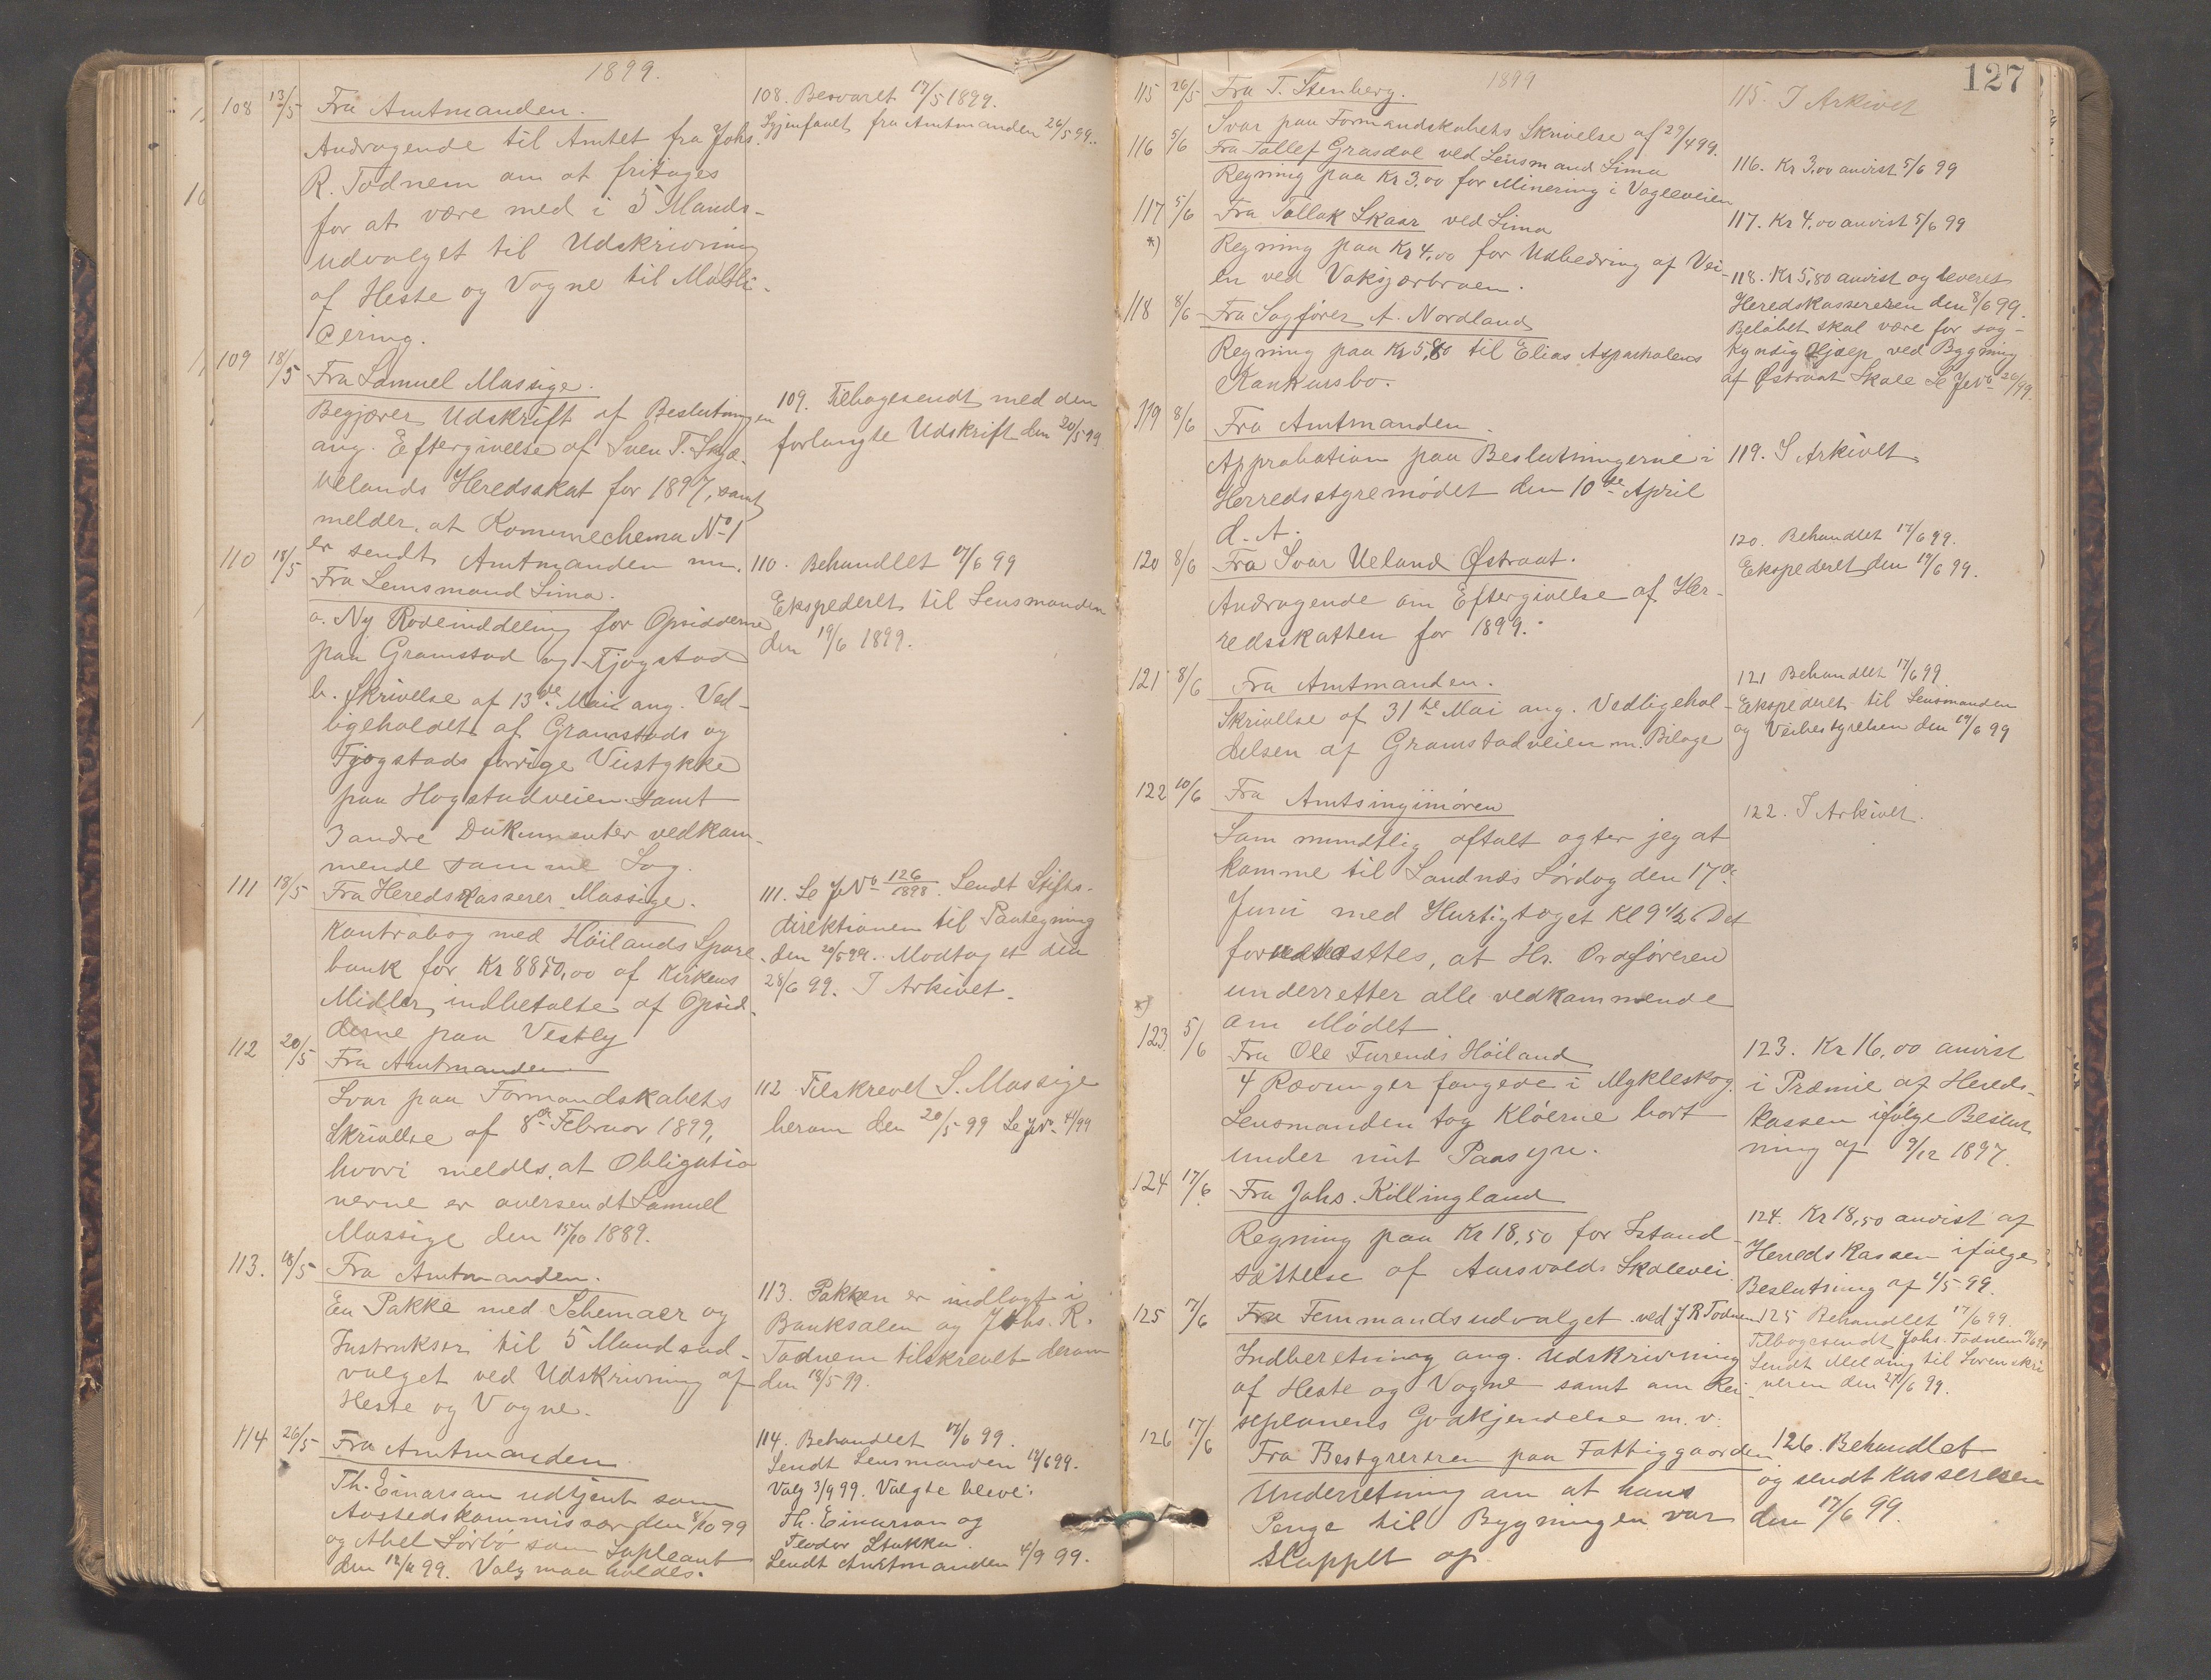 1899.
108 13/5 Fra Amtmanden.
Andragende til Amtet fra Johs.
R. Todnem om at fritages
for at være med i 5 Mands-
udvalget til Udskrivning
af Heste og Vogne til Mobili-
cering.
108. Besvaret 17/5 1899.
Igjenfaaet fra Amtmanden 26/5 99.
109 18/5 Fra Samuel Massige.
Begjærer Udskrift af Beslutningen
ang. Eftergivelse af Sven T. Skjæ-
velands Heredsskat for 1897, samt
melder, at Kommuechema No 1
er sendt Amtmanden
109. Tilbagesendt med den
forlangte Udskrift den 20/5 99
110 18/5 Fra Lensmand Lima.
a. Ny Rodeinddeling for Opsidderne
paa Gramstad og Fjogstad
b. Skrivelse af 13de Mai ang. Ved-
ligeholdet af Gramstads og
Fjogstads forrige Veistykke
paa Hogstadveien samt
3 andre Dokumenter vedkom-
mende samme Sag.
110. Behandlet 17/6 99
Ekspederet til Lensmanden
den 19/6 1899.
111 18/5 Fra Heredskasserer Massige.
Kontrabog med Höilands Spare-
bank for Kr 8850,00 af Kirkens
Midler, indbetalte af Opsid-
derne paa Vestly
111. Se J No 126/1898. Sendt Stifts-
direktionen til Paategning
den 20/5 99. Modtaget den
28/6 99. I Arkivet.
112 20/5 Fra Amtmanden
Svar paa Formandskabets
Skrivelse af 8de Februar 1899,
hvori meldes, at Obligatio
nerne er oversendt Samuel
Massige den 15/10 1889.
112 Tilskrevet S. Massige
herom den 20/5 99 Se JNo 41/99
113. 18/5 Fra Amtmanden.
En Pakke med Schemaer og
Instrukser til 5 Mandsud-
valget ved Udskrivning af
Heste og Vogne.
113. Pakken er indlagt i
Banksalen og Johs. R.
Todnem tilskrevet derom
den 18/5 99.
114 26/5 Fra Amtmanden
Th. Einarsan udtjent som
Aastedskommissær den 8/10 99
og Abel Sörbö som Supleant
den 12/11 99. Valg maa holdes.
114. Behandlet 17/6 99.
Sendt Lensmanden 19/6 99.
Valg 3/9 99. Valgte bleve:
Th. Einarsan og
Teodor Stokka.
Sendt Amtmanden 4/9 99.
127
1899
115 26/5 Fra T. Stenberg.
Svar paa Formandskabets Skrivelse af 29/4 99.
115. I Arkivet
116 5/6 Fra Tollef Grasdal ved Lensmand Lima
Regning paa Kr 3,00 for Minering i Vagleveien
116. Kr 3,00 anvist 5/6 99
117 5/6 Fra Tollak Skaar ved Lima
*) Regning paa Kr 4,00 for Udbedring af Vei-
en ved Vaksjærbroen.
117. Kr 4,00 anvist 5/6 99
118 8/6 Fra Sagförer A. Nordland
Regning paa Kr 5,80 til Elias Asparholens
Konkursbo.
118. Kr 5,80 anvist og leveret
Heredskassereren den 8/6 99.
Belöbet skal være for sag-
kyndig Hjælp ved Bygning
af Østraat Skole Se JNo 26/99.
119 8/6 Fra Amtmanden.
Approbation paa Beslutningerne i
Herredsstyremödet den 10de April
d. A.
119. I Arkivet
120 8/6 Fra Ivar Ueland Østraat.
Andragende om Eftergivelse af Her-
redsskatten for 1899.
120. Behandlet 17/6 99.
Ekspederet den 19/6 99.
121 8/6 Fra Amtmanden.
Skrivelse af 31te Mai ang. Vedligehol-
delsen af Gramstadveien m. Bilage
121 Behandlet 17/6 99.
Ekspederet til Lensmanden
og Veibestyrelsen den 19/6 99
122 10/6 Fra Amtsinginiören
Som mundtlig aftalt agter jeg at
komme til Sandnes Lördag den 17de
Juni med Hurtigtoget Kl 9 1/2. Det
forudsættes, at Hr. Ordföreren
underretter alle vedkommende
om Mödet
122. I Arkivet.
*)
123. 5/6 Fra Ole Tarends Höiland
4 Rævunger fangede i Mykleskog.
Lensmanden tog Klöerne bort
under mit Paasyn.
123. Kr 16,00 anvist
i Præmie af Hereds-
kassen ifölge Beslut
ning af 9/12 1897.
124 17/6 Fra Johs. Killingland
Regning paa Kr 18,50 for Istand-
sættelse af Aarsvolds Skolevei.
124. Kr 18,50 anvist af
Herredskassen ifölge
Beslutning af 1/5 99.
125 17/6 Fra Femmandsudvalget ved J R Todnem
Indberetning ang. Udskrivning
af Heste og Vogne samt om Rei-
seplanens Godkjendelse m. v.
125 Behandlet 17/6 99.
Tilbagesendt Johs. Todnem 19/6 99
Sendt Melding til Sorenskri
veren den 27/6 99.
126 17/6 Fra Bestyreren paa Fattiggaarden
Underretning om at hans
Penge til Bygningen var
sluppet op
126. Behandlet
og sendt Kassereren
den 17/6 99.